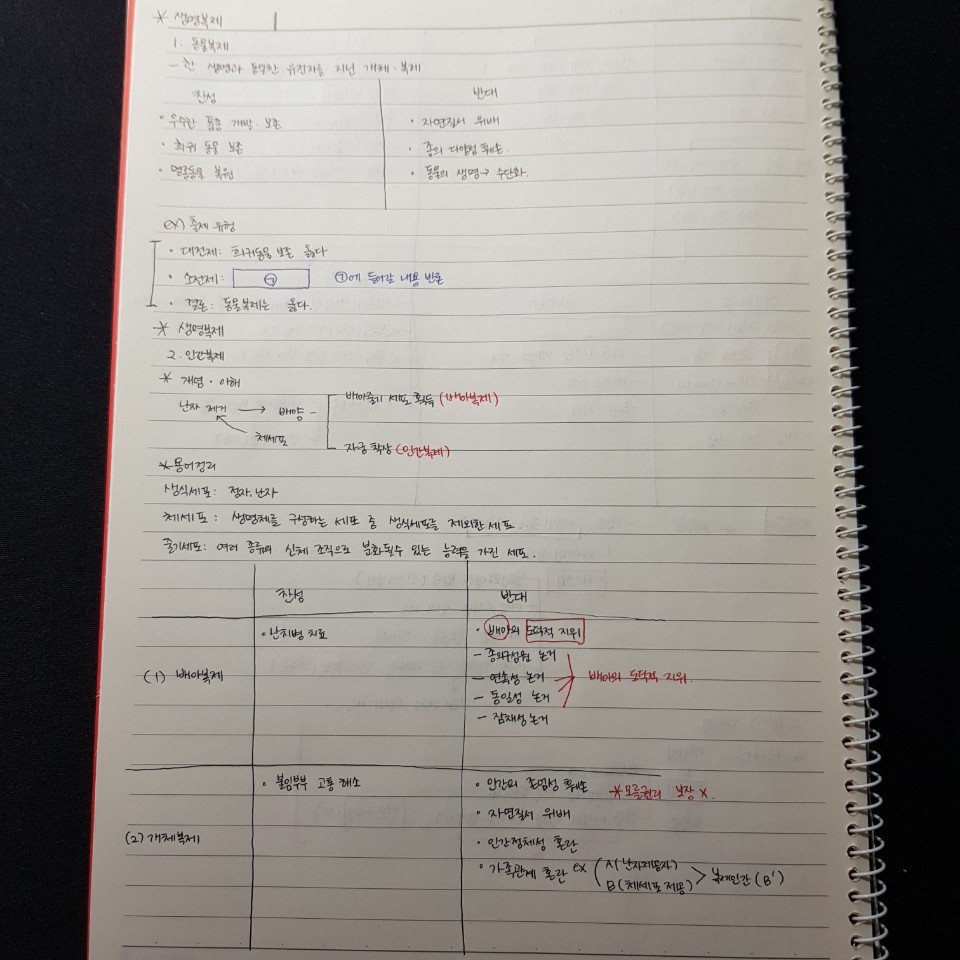 * 생명복제
1. 동물복제
- 한 생명과 동일한 유전자를 지닌 개체·복제
찬성 반대
• 우수한 품종 개발·보존 • 자연질서 위배
• 희귀 동물 보존 • 종의 다양성 훼손.
• 멸종동물 복원 • 동물의 생명→ 수단화.
ex) 출제 유형
• 대전제: 희귀동물 보존 옳다
• 소전제: ㉠ ㉠에 들어갈 내용 반론
• 결론: 동물복제는 옳다.
* 생명복제
2. 인간복제
* 개념·이해
배아줄기 세포 획득 (배아복제)
난자 제거 → 배양 -
체세포
자궁 착상 (인간복제)
*용어정리
생식세포: 정자, 난자
체세포: 생명체를 구성하는 세포 중 생식세포를 제외한 세포
줄기세포: 여러 종류의 신체 조직으로 분화될수 있는 능력을 가진 세포.
찬성 반대
(1) 배아복제
• 난치병 치료
• 배아의 도덕적 지위
- 종의구성원 논거
- 연속성 논거
- 동일성 논거
- 잠재성 논거
→ 배아의 도덕적 지위.
(2) 개체복제
• 불임부부 고통 해소
• 인간의 존엄성 훼손 *모를권리 보장 X.
• 자연질서 위배
• 인간정체성 혼란
• 가족관계 혼란 ex ( A(난자제공자)
B(체세포 제공) > 복제인간 (B')